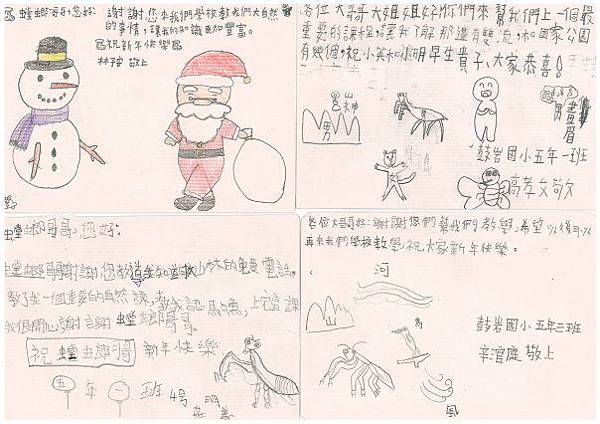 螳螂哥哥:您好:
謝謝您來我們學校教我們大自然
的事情,讓我的知識更加豐富。
祝新年快樂
林 敬上
各位大哥哥大姐姐好你們來幫我們上一個最
重要的課程,讓我了解那還有雙流,和國家公園
有幾個,祝小英和小明早生貴子,大家恭喜!
山神
男
男畫眉
鼓岩國小五年一班
高孝文敬
螂哥哥:您好:
螳螂哥哥謝謝您教
教了我一個重要的自然課,
我很開心謝謝螳螂哥哥
祝螳螂哥哥新年快樂
五年一班4號
各位大哥哥姐姐:謝謝您們幫我們教學,希望以後可以
再來我們學校教學,祝大家新年快樂。
河
鳥
風
鼓岩國小五年三班
辛 庭敬上